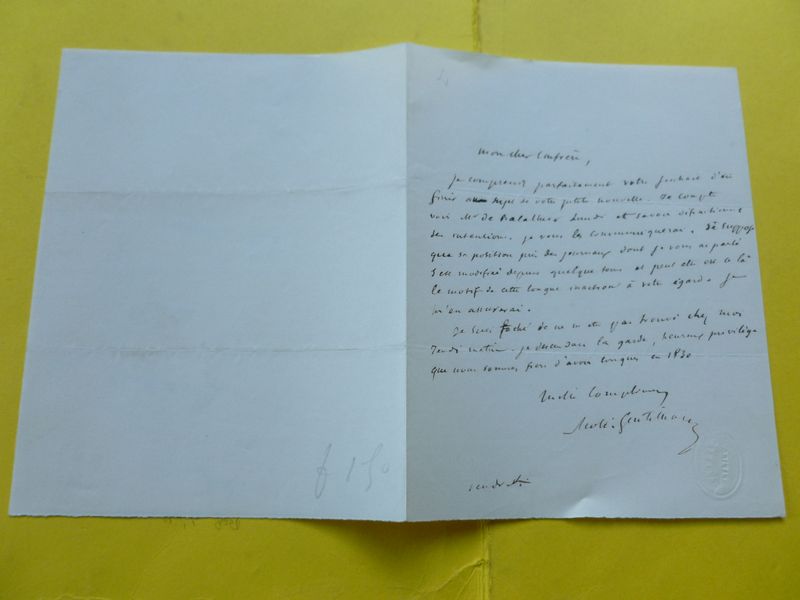 mon cher Confrère,
Je comprends parfaitement votre d'en
finir au sujet de votre petite nouvelle. Je compte
voir Mr de Balathier Lundi et savoir
ses intentions. je vous les communiquerai. Je suppose
que sa position près des journaux dont je vous ai parlé
s'est modifiée depuis quelque tems et peut être est ce là
le motif de cette longue inaction à votre égard. Je
m'en assurerai.
Je suis faché de ne m'être pas trouvé chez moi
Jeudi matin. je descendais la garde, heureux privilège
que nous sommes fiers d'avoir conquis en 1830
Molé-Gentilhomme
vendredi
f 150